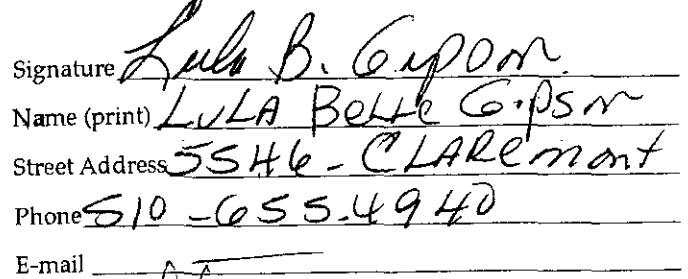 Signature Lula B. Gipson
Name (print) LULA BELLE GIPSON
Street Address 5546 - CLAREmont
Phone 510-655-4940
E-mail